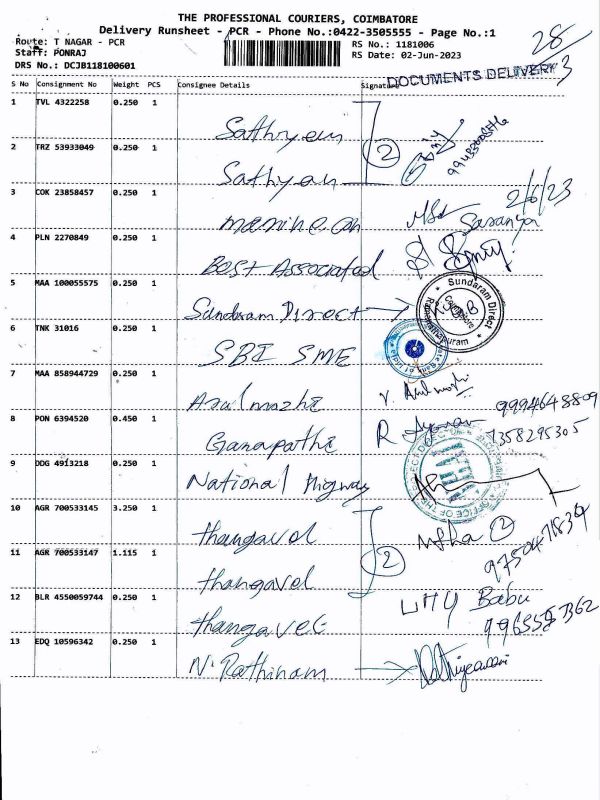 THE PROFESSIONAL COURIERS, COIMBATORE
Delivery Runsheet - PCR - Phone No.:0422-3505555 - Page No.:1
Route: T NAGAR - PCR
RS No.: 1181006
Staff: PONRAJ
RS Date: 02-Jun-2023
DRS No.: DCJB118100601
28
3
DOCUMENTS DELIVERY
S No Consignment No Weight PCS Consignee Details Signature
1 TVL 4322258 0.250 1
Sathyan
2
2 TRZ 53933049 0.250 1
Sathyan
3 COK 23858457 0.250 1
2/6/23
Saranya
4 PLN 2270849 0.250 1
Best Associated
5 MAA 100055575 0.250 1
Sundaram Direct
Sundaram Direct
Coimbatore
Ramanathapuram
6 TNK 31016 0.250 1
SBI SME
7 MAA 858944729 0.250 1
Arulmozhi
8 PON 6394520 0.450 1
Ganapathi
9994648809
7358295305
9 DDG 4913218 0.250 1
National Higway
OFFICE OF THE
10 AGR 700533145 3.250 1
thangavel
2
11 AGR 700533147 1.115 1
thangavel
2
12 BLR 4550059744 0.250 1
thangavel
Babu
13 EDQ 10596342 0.250 1
N. Rathinam